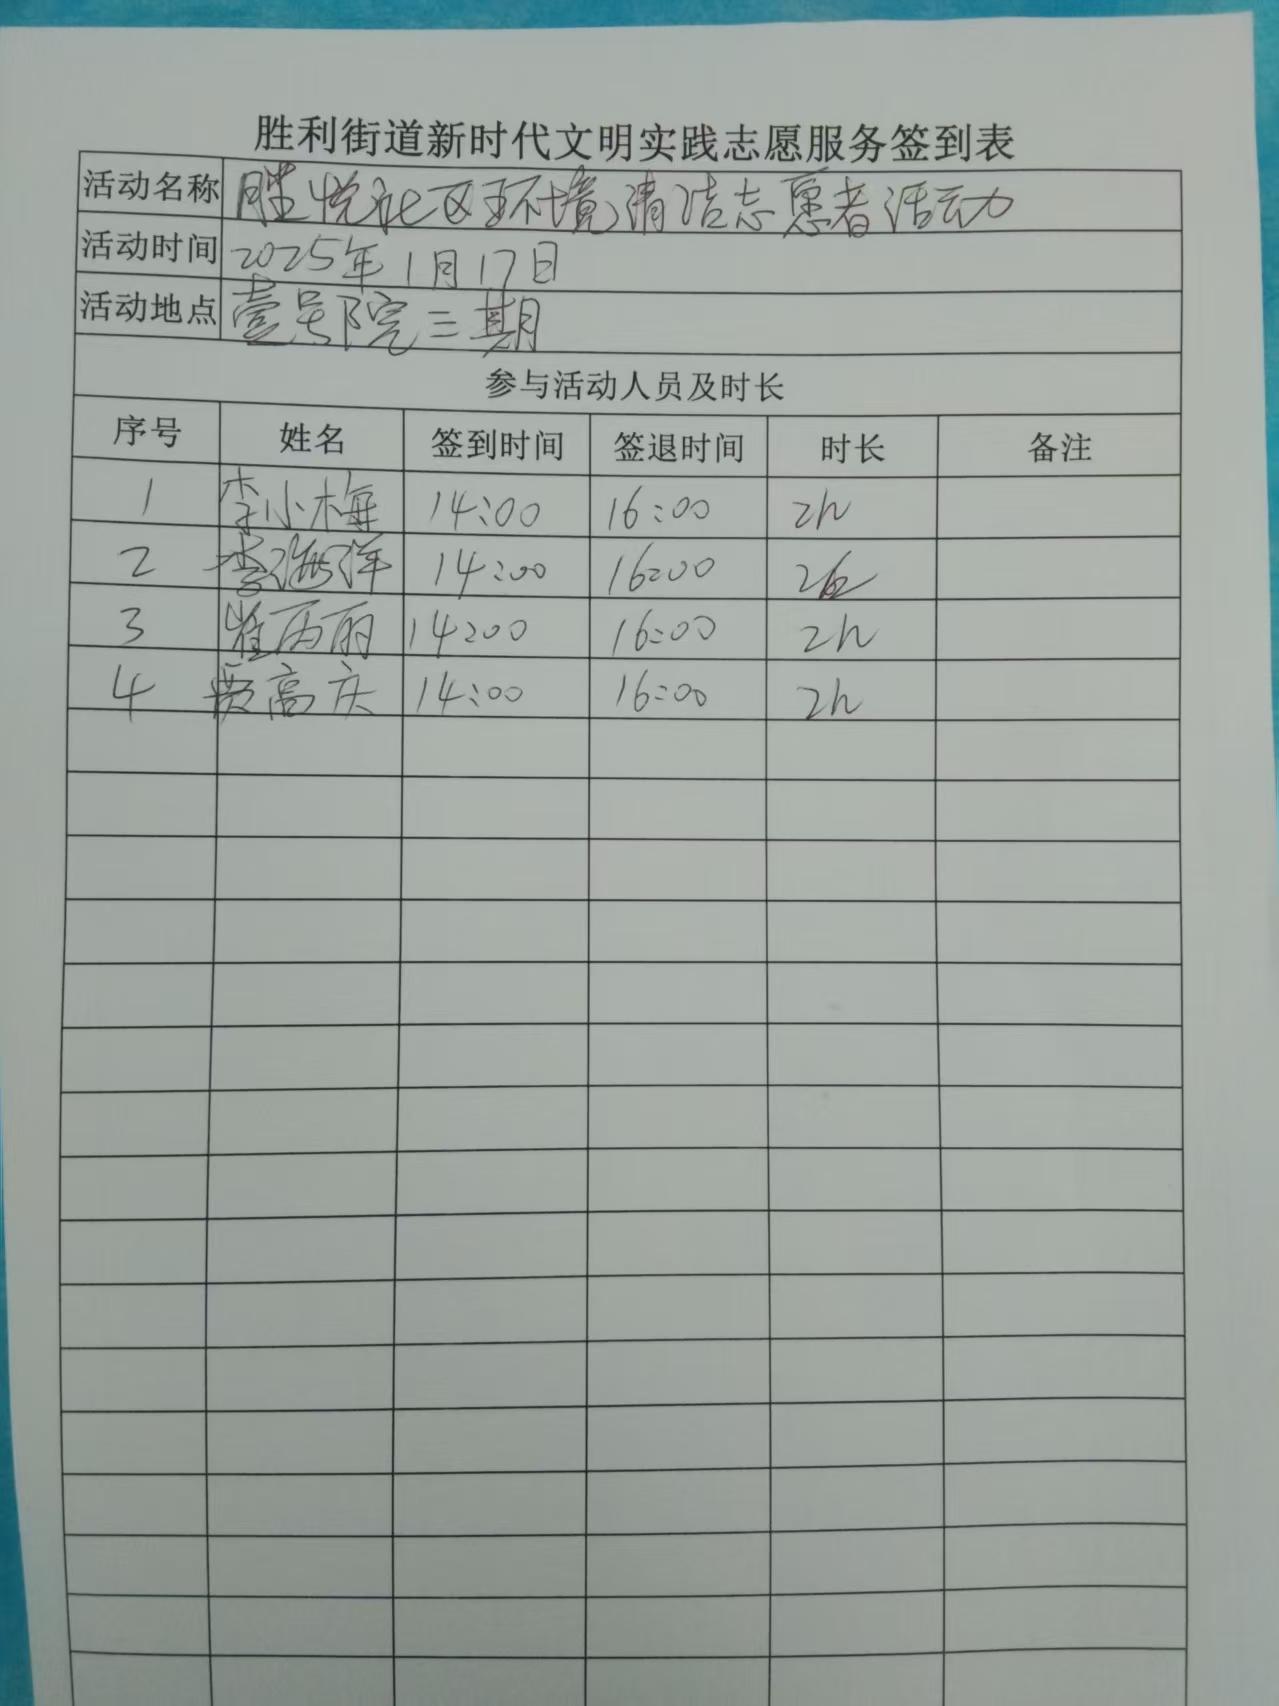 胜利街道新时代文明实践志愿服务签到表
活动名称 胜悦社区环境清洁志愿者活动
活动时间 2025年1月17日
活动地点 壹号院三期
参与活动人员及时长
序号 姓名 签到时间 签退时间 时长 备注
1 李小梅 14:00 16:00 2h
2 李海洋 14:00 16:00 2h
3 崔丙丽 14:00 16:00 2h
4 贾高庆 14:00 16:00 2h